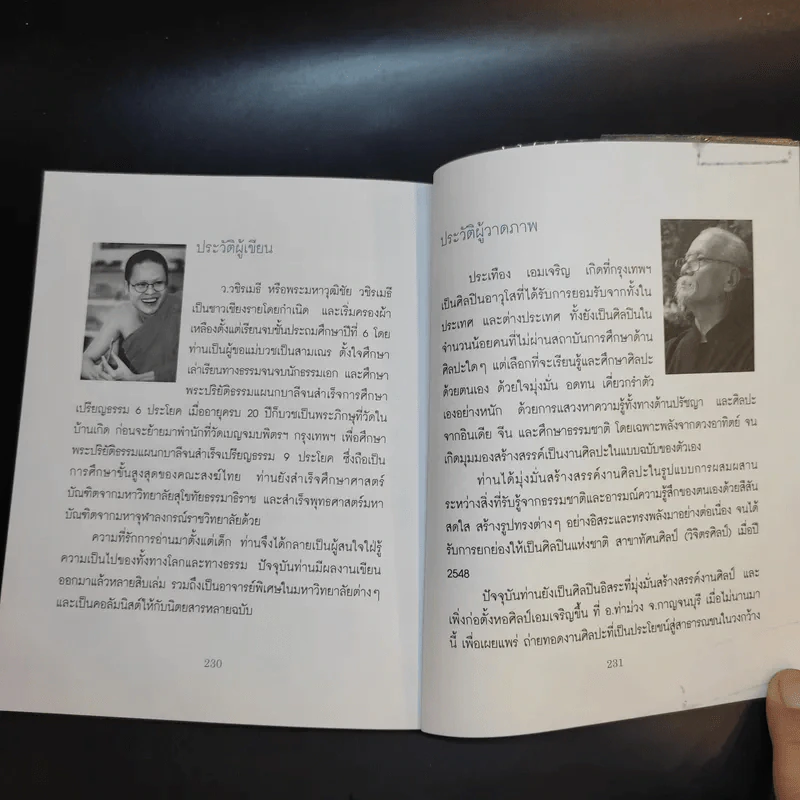 ประวัติผู้เขียน
ว.วชิรเมธี หรือพระมหาวุฒิชัย วชิรเมธี
เป็นชาวเชียงรายโดยกำเนิด และเริ่มครองผ้า
เหลืองตั้งแต่เรียนจบชั้นประถมศึกษาปีที่ 6 โดย
ท่านเป็นผู้ขอแม่บวชเป็นสามเณร ตั้งใจศึกษา
เล่าเรียนทางธรรมจนจบนักธรรมเอก และศึกษา
พระปริยัติธรรมแผนกบาลีจนสำเร็จการศึกษา
เปรียญธรรม 6 ประโยค เมื่ออายุครบ 20 ปีก็บวชเป็นพระภิกษุที่วัดใน
บ้านเกิด ก่อนจะย้ายมาพำนักที่วัดเบญจมบพิตรฯ กรุงเทพฯ เพื่อศึกษา
พระปริยัติธรรมแผนกบาลีจนสำเร็จเปรียญธรรม 9 ประโยค ซึ่งถือเป็น
การศึกษาขั้นสูงสุดของคณะสงฆ์ไทย ท่านยังสำเร็จศึกษาศาสตร์
บัณฑิตจากมหาวิทยาลัยสุโขทัยธรรมาธิราช และสำเร็จพุทธศาสตร์มหา
บัณฑิตจากมหาจุฬาลงกรณ์ราชวิทยาลัยด้วย
ความที่รักการอ่านมาตั้งแต่เด็ก ท่านจึงได้กลายเป็นผู้สนใจใฝ่รู้
ความเป็นไปของทั้งทางโลกและทางธรรม ปัจจุบันท่านมีผลงานเขียน
ออกมาแล้วหลายสิบเล่ม รวมถึงเป็นอาจารย์พิเศษในมหาวิทยาลัยต่างๆ
และเป็นคอลัมนิสต์ให้กับนิตยสารหลายฉบับ
230
ประวัติผู้วาดภาพ
ประเทือง เอมเจริญ เกิดที่กรุงเทพฯ
เป็นศิลปินอาวุโสที่ได้รับการยอมรับจากทั้งใน
ประเทศ และต่างประเทศ ทั้งยังเป็นศิลปินใน
จำนวนน้อยคนที่ไม่ผ่านสถาบันการศึกษาด้าน
ศิลปะใดๆ แต่เลือกที่จะเรียนรู้และศึกษาศิลปะ
ด้วยตนเอง ด้วยใจมุ่งมั่น อดทน เคี่ยวกรำตัว
เองอย่างหนัก ด้วยการแสวงหาความรู้ทั้งทางด้านปรัชญา และศิลปะ
จากอินเดีย จีน และศึกษาธรรมชาติ โดยเฉพาะพลังจากดวงอาทิตย์ จน
เกิดมุมมองสร้างสรรค์เป็นงานศิลปะในแบบฉบับของตัวเอง
ท่านได้มุ่งมั่นสร้างสรรค์งานศิลปะในรูปแบบการผสมผสาน
ระหว่างสิ่งที่รับรู้จากธรรมชาติและอารมณ์ความรู้สึกของตนเองด้วยสีสัน
สดใส สร้างรูปทรงต่างๆ อย่างอิสระและทรงพลังมาอย่างต่อเนื่อง จนได้
รับการยกย่องให้เป็นศิลปินแห่งชาติ สาขาทัศนศิลป์ (วิจิตรศิลป์) เมื่อปี
2548
ปัจจุบันท่านยังเป็นศิลปินอิสระที่มุ่งมั่นสร้างสรรค์งานศิลป์ และ
เพิ่งก่อตั้งหอศิลป์เอมเจริญขึ้น ที่ อ.ท่าม่วง จ.กาญจนบุรี เมื่อไม่นานมา
นี้ เพื่อเผยแพร่ ถ่ายทอดงานศิลปะที่เป็นประโยชน์สู่สาธารณชนในวงกว้าง
231